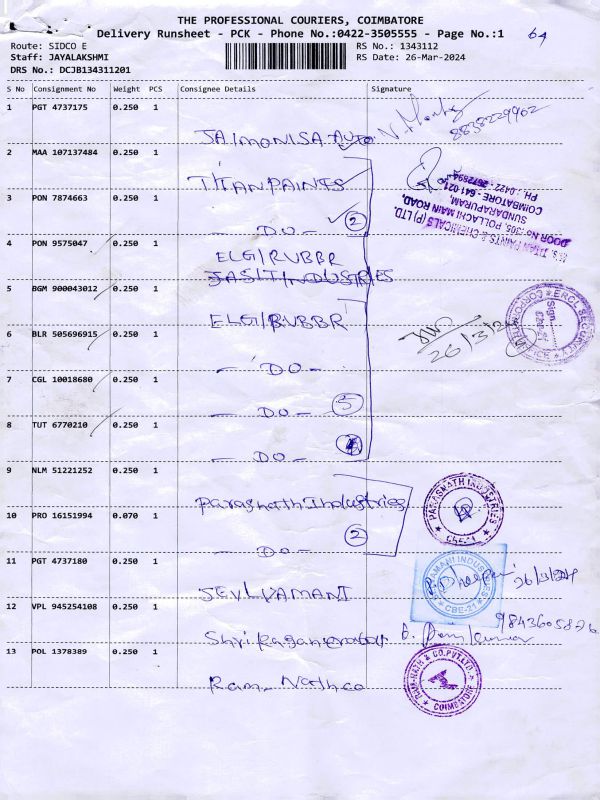 THE PROFESSIONAL COURIERS, COIMBATORE
Delivery Runsheet - PCK - Phone No.:0422-3505555 - Page No.:1
64
Route: SIDCO E
RS No.: 1343112
Staff: JAYALAKSHMI
RS Date: 26-Mar-2024
DRS No.: DCJB134311201
S No Consignment No Weight PCS Consignee Details Signature
1 PGT 4737175 0.250 1
JAIMONISA Auto
8838229902
2 MAA 107137484 0.250 1
TITAN PAINTS
3 PON 7874663 0.250 1
DO 2
M/s. TITAN PAINTS & CHEMICALS (P) LTD.
DOOR No: 305, POLLACHI MAIN ROAD,
SUNDARAPURAM,
COIMBATORE - 641 021
PH.: 0422 - 2672894
4 PON 9575047 0.250 1
ELGI RUBBR
JASIT INDUSTRIES
5 BGM 900043012 0.250 1
ELGI RUBBR
ERCL SECURITY
Sign
26/3/24
6 BLR 505696915 0.250 1
- DO -
7 CGL 10018680 0.250 1
- DO - 5
8 TUT 6770210 0.250 1
- DO -
9 NLM 51221252 0.250 1
Parasnath Industries
PARASNATH INDUSTRIES
CBE-21
10 PRO 16151994 0.070 1
DO - 2
11 PGT 4737180 0.250 1
SELVAMANI
CBE-21
26/3/24
12 VPL 945254108 0.250 1
Shri
9843605826
13 POL 1378389 0.250 1
Ram-Nath co
RAM-NATH & CO.PVT.LTD.
COIMBATORE